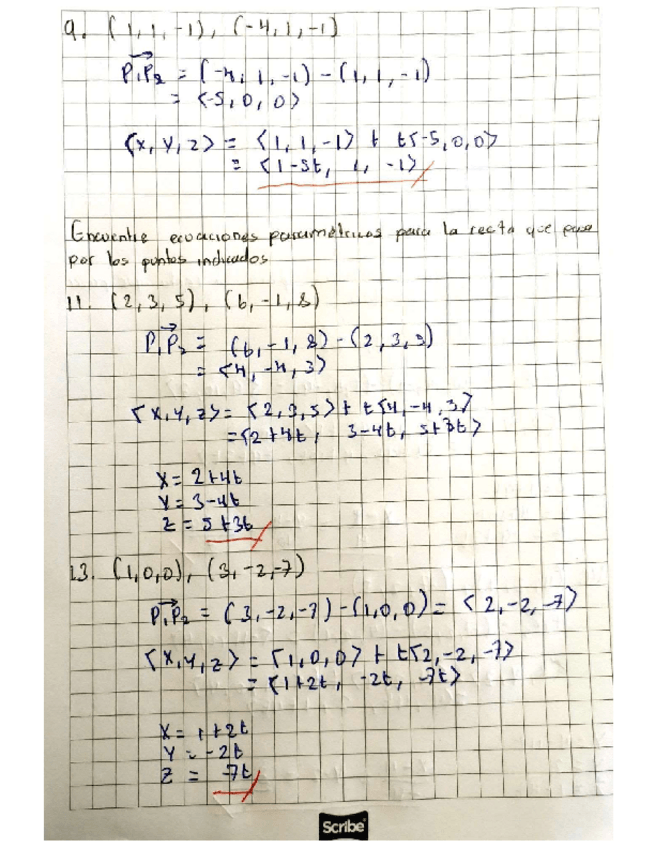 9. (1, 1, -1), (-4, 1, -1)
P₁P₂ = (-4, 1, -1) - (1, 1, -1)
= <-5, 0, 0>
<x, y, z> = <1, 1, -1> + t<-5, 0, 0>
= <1-5t, 1, -1>
Encuentre ecuaciones paramétricas para la recta que pase
por los puntos indicados
11. (2, 3, 5), (6, -1, 8)
P₁P₂ = (6, -1, 8) - (2, 3, 5)
= <4, -4, 3>
<x, y, z> = <2, 3, 5> + t<4, -4, 3>
= <2+4t, 3-4t, 5+3t>
x = 2+4t
y = 3-4t
z = 5+3t
13. (1, 0, 0), (3, -2, -7)
P₁P₂ = (3, -2, -7) - (1, 0, 0) = <2, -2, -7>
<x, y, z> = <1, 0, 0> + t<2, -2, -7>
= <1+2t, -2t, -7t>
x = 1+2t
y = -2t
z = -7t
Scribe